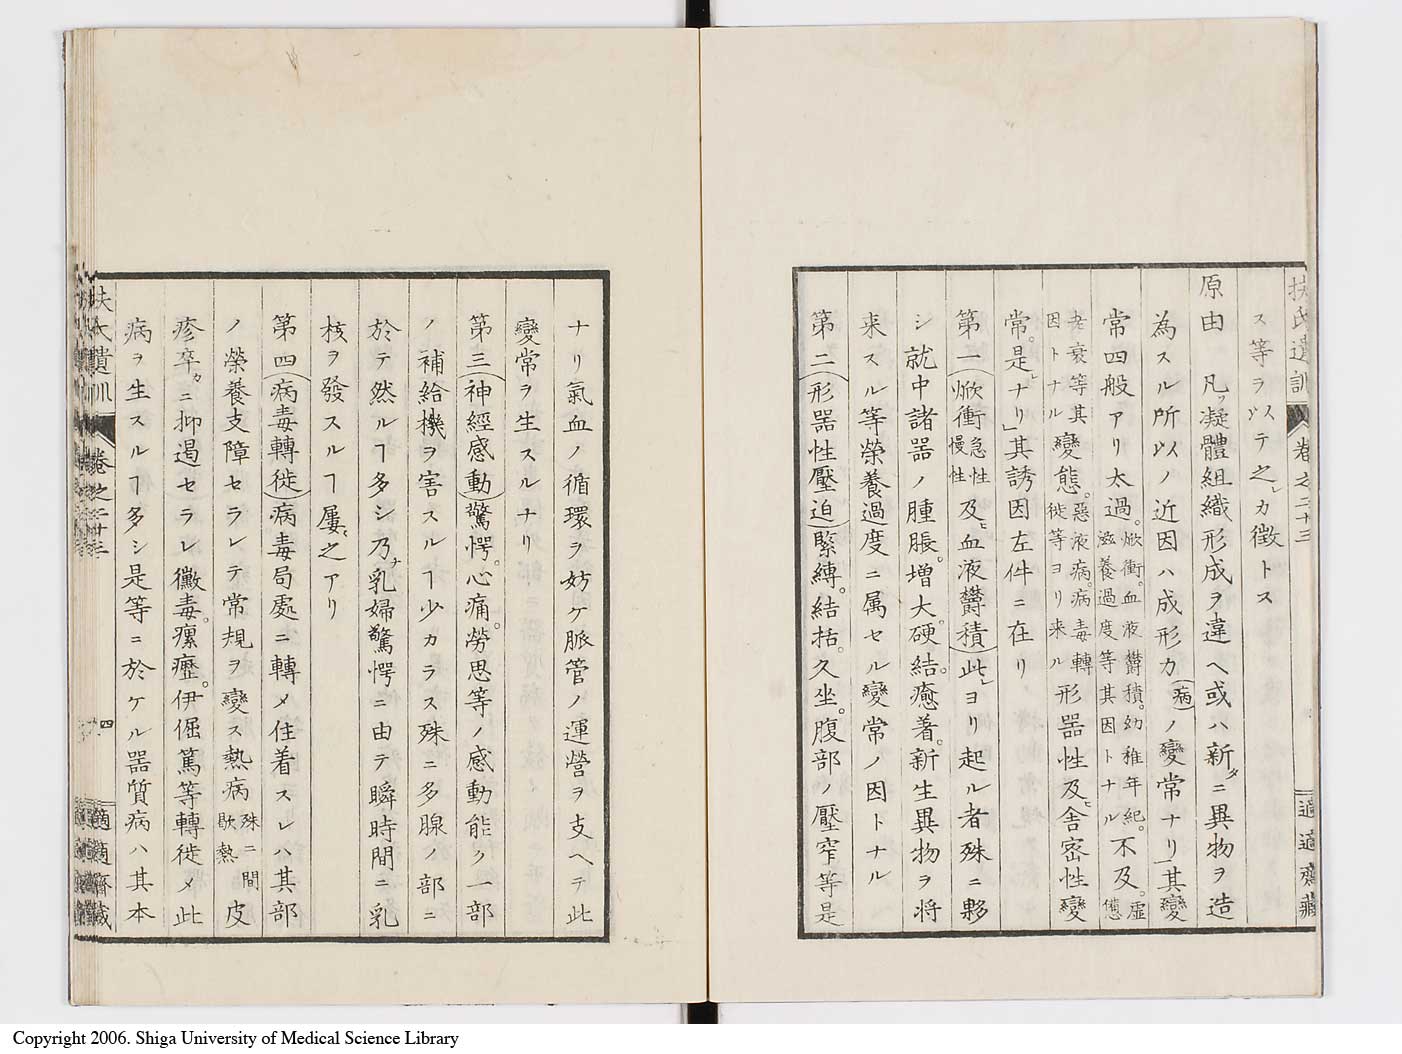 扶氏遺訓 卷之二十三 適適齋藏
ス等ヲ以テ之レカ徴トス
原由 凡ソ凝體組織形成ヲ違ヘ或ハ新タニ異物ヲ造
為スル所以ノ近因ハ成形力(病)ノ變常ナリ」其變
常四般アリ太過。焮衝。血液欝積。幼稚年紀。滋養過度等其因トナル不及。虚憊
老衰等其因トナル變態。惡液病。病毒轉徙等ヨリ来ル形器性及ヒ舎密性變
常。是レナリ」其誘因左件ニ在リ
第一(焮衝急性慢性及ヒ血液欝積)此レヨリ起ル者殊ニ夥
シ就中諸器ノ腫脹。増大。硬結。癒着。新生異物ヲ将
来スル等榮養過度ニ属セル變常ノ因トナル
第二(形器性壓迫)緊縛。結括。久坐。腹部ノ壓窄等是
ナリ氣血ノ循環ヲ妨ケ脈管ノ運營ヲ支ヘテ此
變常ヲ生スルナリ
第三(神經感動)驚愕。心痛。勞思等ノ感動能ク一部
ノ補給機ヲ害スルヿ少カラス殊ニ多腺ノ部ニ
於テ然ルヿ多シ乃ナ乳婦驚愕ニ由テ瞬時間ニ乳
核ヲ發スルヿ屢之アリ
第四(病毒轉徙)病毒局處ニ轉メ住着スレハ其部
ノ榮養支障セラレテ常規ヲ變ス熱病殊ニ間歇熱皮
疹卒カニ抑遏セラレ黴毒。瘰癧。伊倔篤等轉徙メ此
病ヲ生スルヿ多シ是等ニ於ケル器質病ハ其本
扶氏遺訓 卷之二十三 四 適適齋藏
Copyright 2006. Shiga University of Medical Science Library